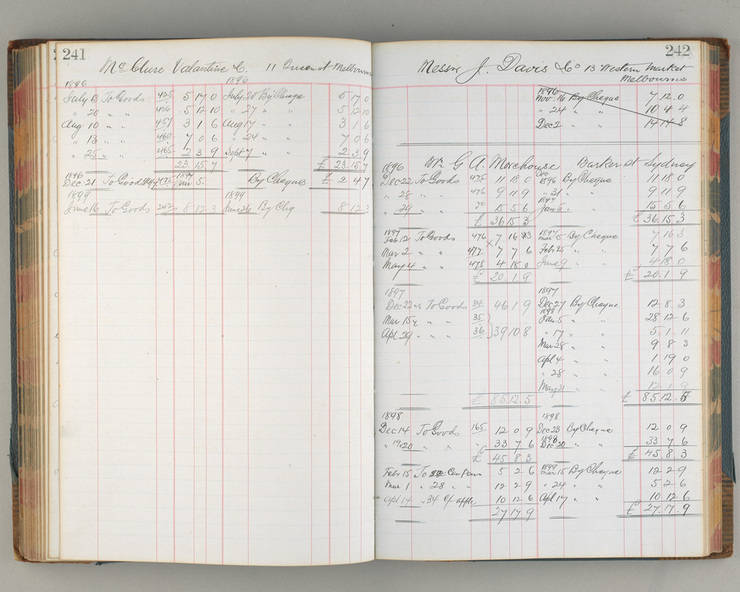 241
McClure Valantine & Co. 11 Queen st Melbourne
1896 1896
July 6 To Goods 425 5 17 0 July 20 By Cheque 5 17 0
" 20 " " 5 12 10 " 27 " 5 12 10
Aug 10 " " 457 3 1 6 Aug 17 " 3 1 6
" 13 " " 460 7 0 6 " 24 " 7 0 6
" 25 " " 465 2 3 9 Sept 7 " 2 3 9
23 15 7 £ 23 15 7
1896 1897
Dec 21 To Goods By Cheques £ 2 4 7
1899 1899
June 16 To Goods 242 8 12 3 June 26 By Chq 8 12 3
242
Messrs J. Davis & Co 13 Western Market
Melbourne
1896
Nov. 16 By Cheque 7 12 0
" 24 " " 10 4 4
Dec 2 14 14 8
1896 Mr G A Morehouse Barker st Sydney
Dec 22 To Goods 475 11 18 0 1896 By Cheque 11 18 0
" 28 " 476 9 11 9 " 31 " 9 11 9
1897
" 29 " 15 5 6 Jan 5 " 15 5 6
£ 36 15 3 £ 36 15 3
1897 1897
Feb 12 To Goods 476 7 16 3 Mar 5 By Cheque 7 16 3
Mar 2 " " 477 7 7 6 Feb 25 " 7 7 6
May 4 " " 478 4 18 0 June 9 " 4 18 0
£ 20 1 9 £ 20 1 9
1897 1897
Dec 22 To Goods 34 46 1 9 Dec 27 By Cheque 12 8 3
1898
Mar 15 " " 35 Jan 5 " " 28 12 6
Apl 29 " " 36 39 10 8 " 17 " " 5 1 11
Mar 28 " " 9 8 3
Apl 4 " " 1 19 0
" 28 " " 16 0 9
May 31 " " 12 1 9
£ 85 12 5 £ 85 12 5
1898 1898
Dec 14 To Goods 165 12 0 9 Dec 23 By Cheque 12 0 9
" 19/20 " " 33 7 6 Dec 30 " " 33 7 6
£ 45 8 3 £ 45 8 3
1899
Feb 15 To 5 2 6 Mar 15 By Cheque 12 2 9
Mar 1 " 28 " " 12 2 9 " 24 " " 5 2 6
Apl 14 " 34 c/ apples 10 12 6 Apl 17 " " 10 12 6
27 17 9 £ 27 17 9